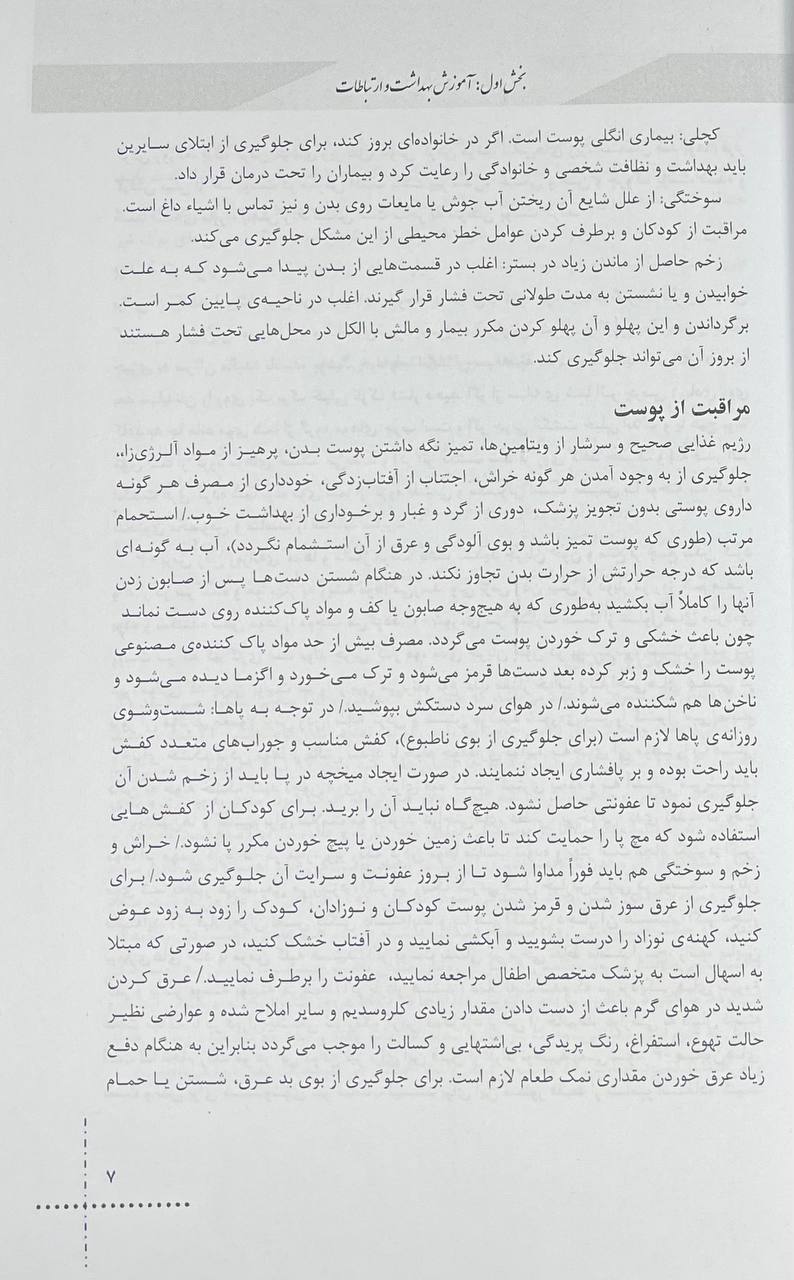 بخش اول: آموزش بهداشت و ارتباطات
کچلی: بیماری انگلی پوست است. اگر در خانواده‌ای بروز کند، برای جلوگیری از ابتلای سایرین
باید بهداشت و نظافت شخصی و خانوادگی را رعایت کرد و بیماران را تحت درمان قرار داد.
سوختگی: از علل شایع آن ریختن آب جوش یا مایعات روی بدن و نیز تماس با اشیاء داغ است.
مراقبت از کودکان و برطرف کردن عوامل خطر محیطی از این مشکل جلوگیری می‌کند.
زخم حاصل از ماندن زیاد در بستر: اغلب در قسمت‌هایی از بدن پیدا می‌شود که به علت
خوابیدن و یا نشستن به مدت طولانی تحت فشار قرار گیرند. اغلب در ناحیه‌ی پایین کمر است.
برگرداندن و این پهلو و آن پهلو کردن مکرر بیمار و مالش با الکل در محل‌هایی تحت فشار هستند
از بروز آن می‌تواند جلوگیری کند.
مراقبت از پوست
رژیم غذایی صحیح و سرشار از ویتامین‌ها، تمیز نگه داشتن پوست بدن، پرهیز از مواد آلرژی‌زا،،
جلوگیری از به وجود آمدن هر گونه خراش، اجتناب از آفتاب‌زدگی، خودداری از مصرف هر گونه
داروی پوستی بدون تجویز پزشک، دوری از گرد و غبار و برخوداری از بهداشت خوب./ استحمام
مرتب (طوری که پوست تمیز باشد و بوی آلودگی و عرق از آن استشمام نگردد)، آب به گونه‌ای
باشد که درجه حرارتش از حرارت بدن تجاوز نکند. در هنگام شستن دست‌ها پس از صابون زدن
آنها را کاملاً آب بکشید به‌طوری که به هیچ‌وجه صابون یا کف و مواد پاک‌کننده روی دست نماند
چون باعث خشکی و ترک خوردن پوست می‌گردد. مصرف بیش از حد مواد پاک کننده‌ی مصنوعی
پوست را خشک و زبر کرده بعد دست‌ها قرمز می‌شود و ترک می‌خورد و اگزما دیده می‌شود و
ناخن‌ها هم شکننده می‌شوند./ در هوای سرد دستکش بپوشید./ در توجه به پاها: شست‌وشوی
روزانه‌ی پاها لازم است (برای جلوگیری از بوی ناطبوع)، کفش مناسب و جوراب‌های متعدد کفش
باید راحت بوده و بر پافشاری ایجاد ننمایند. در صورت ایجاد میخچه در پا باید از زخم شدن آن
جلوگیری نمود تا عفونتی حاصل نشود. هیچ‌گاه نباید آن را برید. برای کودکان از کفش هایی
استفاده شود که مچ پا را حمایت کند تا باعث زمین خوردن یا پیچ خوردن مکرر پا نشود./ خراش و
زخم و سوختگی هم باید فوراً مداوا شود تا از بروز عفونت و سرایت آن جلوگیری شود./ برای
جلوگیری از عرق سوز شدن و قرمز شدن پوست کودکان و نوزادان، کودک را زود به زود عوض
کنید، کهنه‌ی نوزاد را درست بشویید و آبکشی نمایید و در آفتاب خشک کنید، در صورتی که مبتلا
به اسهال است به پزشک متخصص اطفال مراجعه نمایید، عفونت را برطرف نمایید./ عرق کردن
شدید در هوای گرم باعث از دست دادن مقدار زیادی کلروسدیم و سایر املاح شده و عوارضی نظیر
حالت تهوع، استفراغ، رنگ پریدگی، بی‌اشتهایی و کسالت را موجب می‌گردد بنابراین به هنگام دفع
زیاد عرق خوردن مقداری نمک طعام لازم است. برای جلوگیری از بوی بد عرق، شستن یا حمام
۷